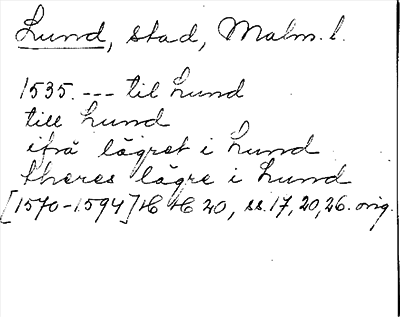 Lund, stad, Malm. l.
1535. --- til Lund
till Lund
ifrå lägret i Lund
theres lägre i Lund
[1570-1594] HH 20, ss. 17, 20, 26. orig.